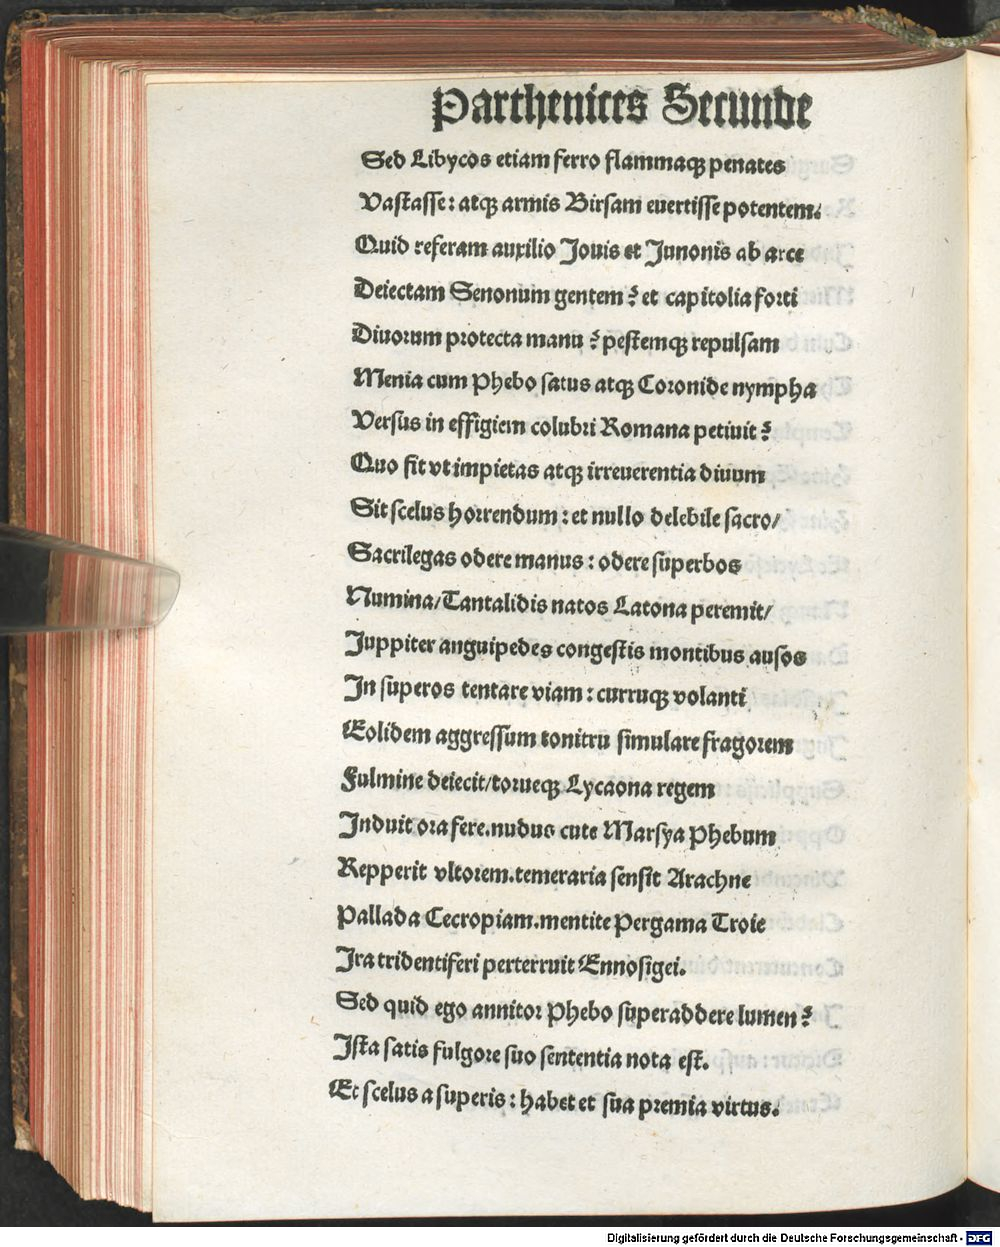 Parthenices Secunde
Sed Libycos etiam ferro flammaqꝫ penates
Vastasse: atqꝫ armis Birsam euertisse potentem.
Quid referam auxilio Jouis et Junonis ab arce
Deiectam Senonum gentem? et capitolia forti
Diuorum protecta manu? pestemqꝫ repulsam
Menia cum Phebo satus atqꝫ Coronide nympha
Versus in effigiem colubri Romana petiuit?
Quo fit vt impietas atqꝫ irreuerentia diuum
Sit scelus horrendum: et nullo delebile sacro/
Sacrilegas odere manus: odere superbos
Numina/Tantalidis natos Latona peremit/
Juppiter anguipedes congestis montibus ausos
In superos tentare viam: curruqꝫ volanti
Eolidem aggressum tonitru simulare fragorem
Fulmine deiecit/torueqꝫ Lycaona regem
Induit ora fere.nudus cute Marsya Phebum
Repperit vltorem.temeraria sensit Arachne
Pallada Cecropiam.mentite Pergama Troie
Ira tridentiferi perterruit Ennosigei.
Sed quid ego annitor Phebo superaddere lumen?
Ista satis fulgore suo sententia nota est.
Et scelus a superis: habet et sua premia virtus.
Digitalisierung gefördert durch die Deutsche Forschungsgemeinschaft - DFG